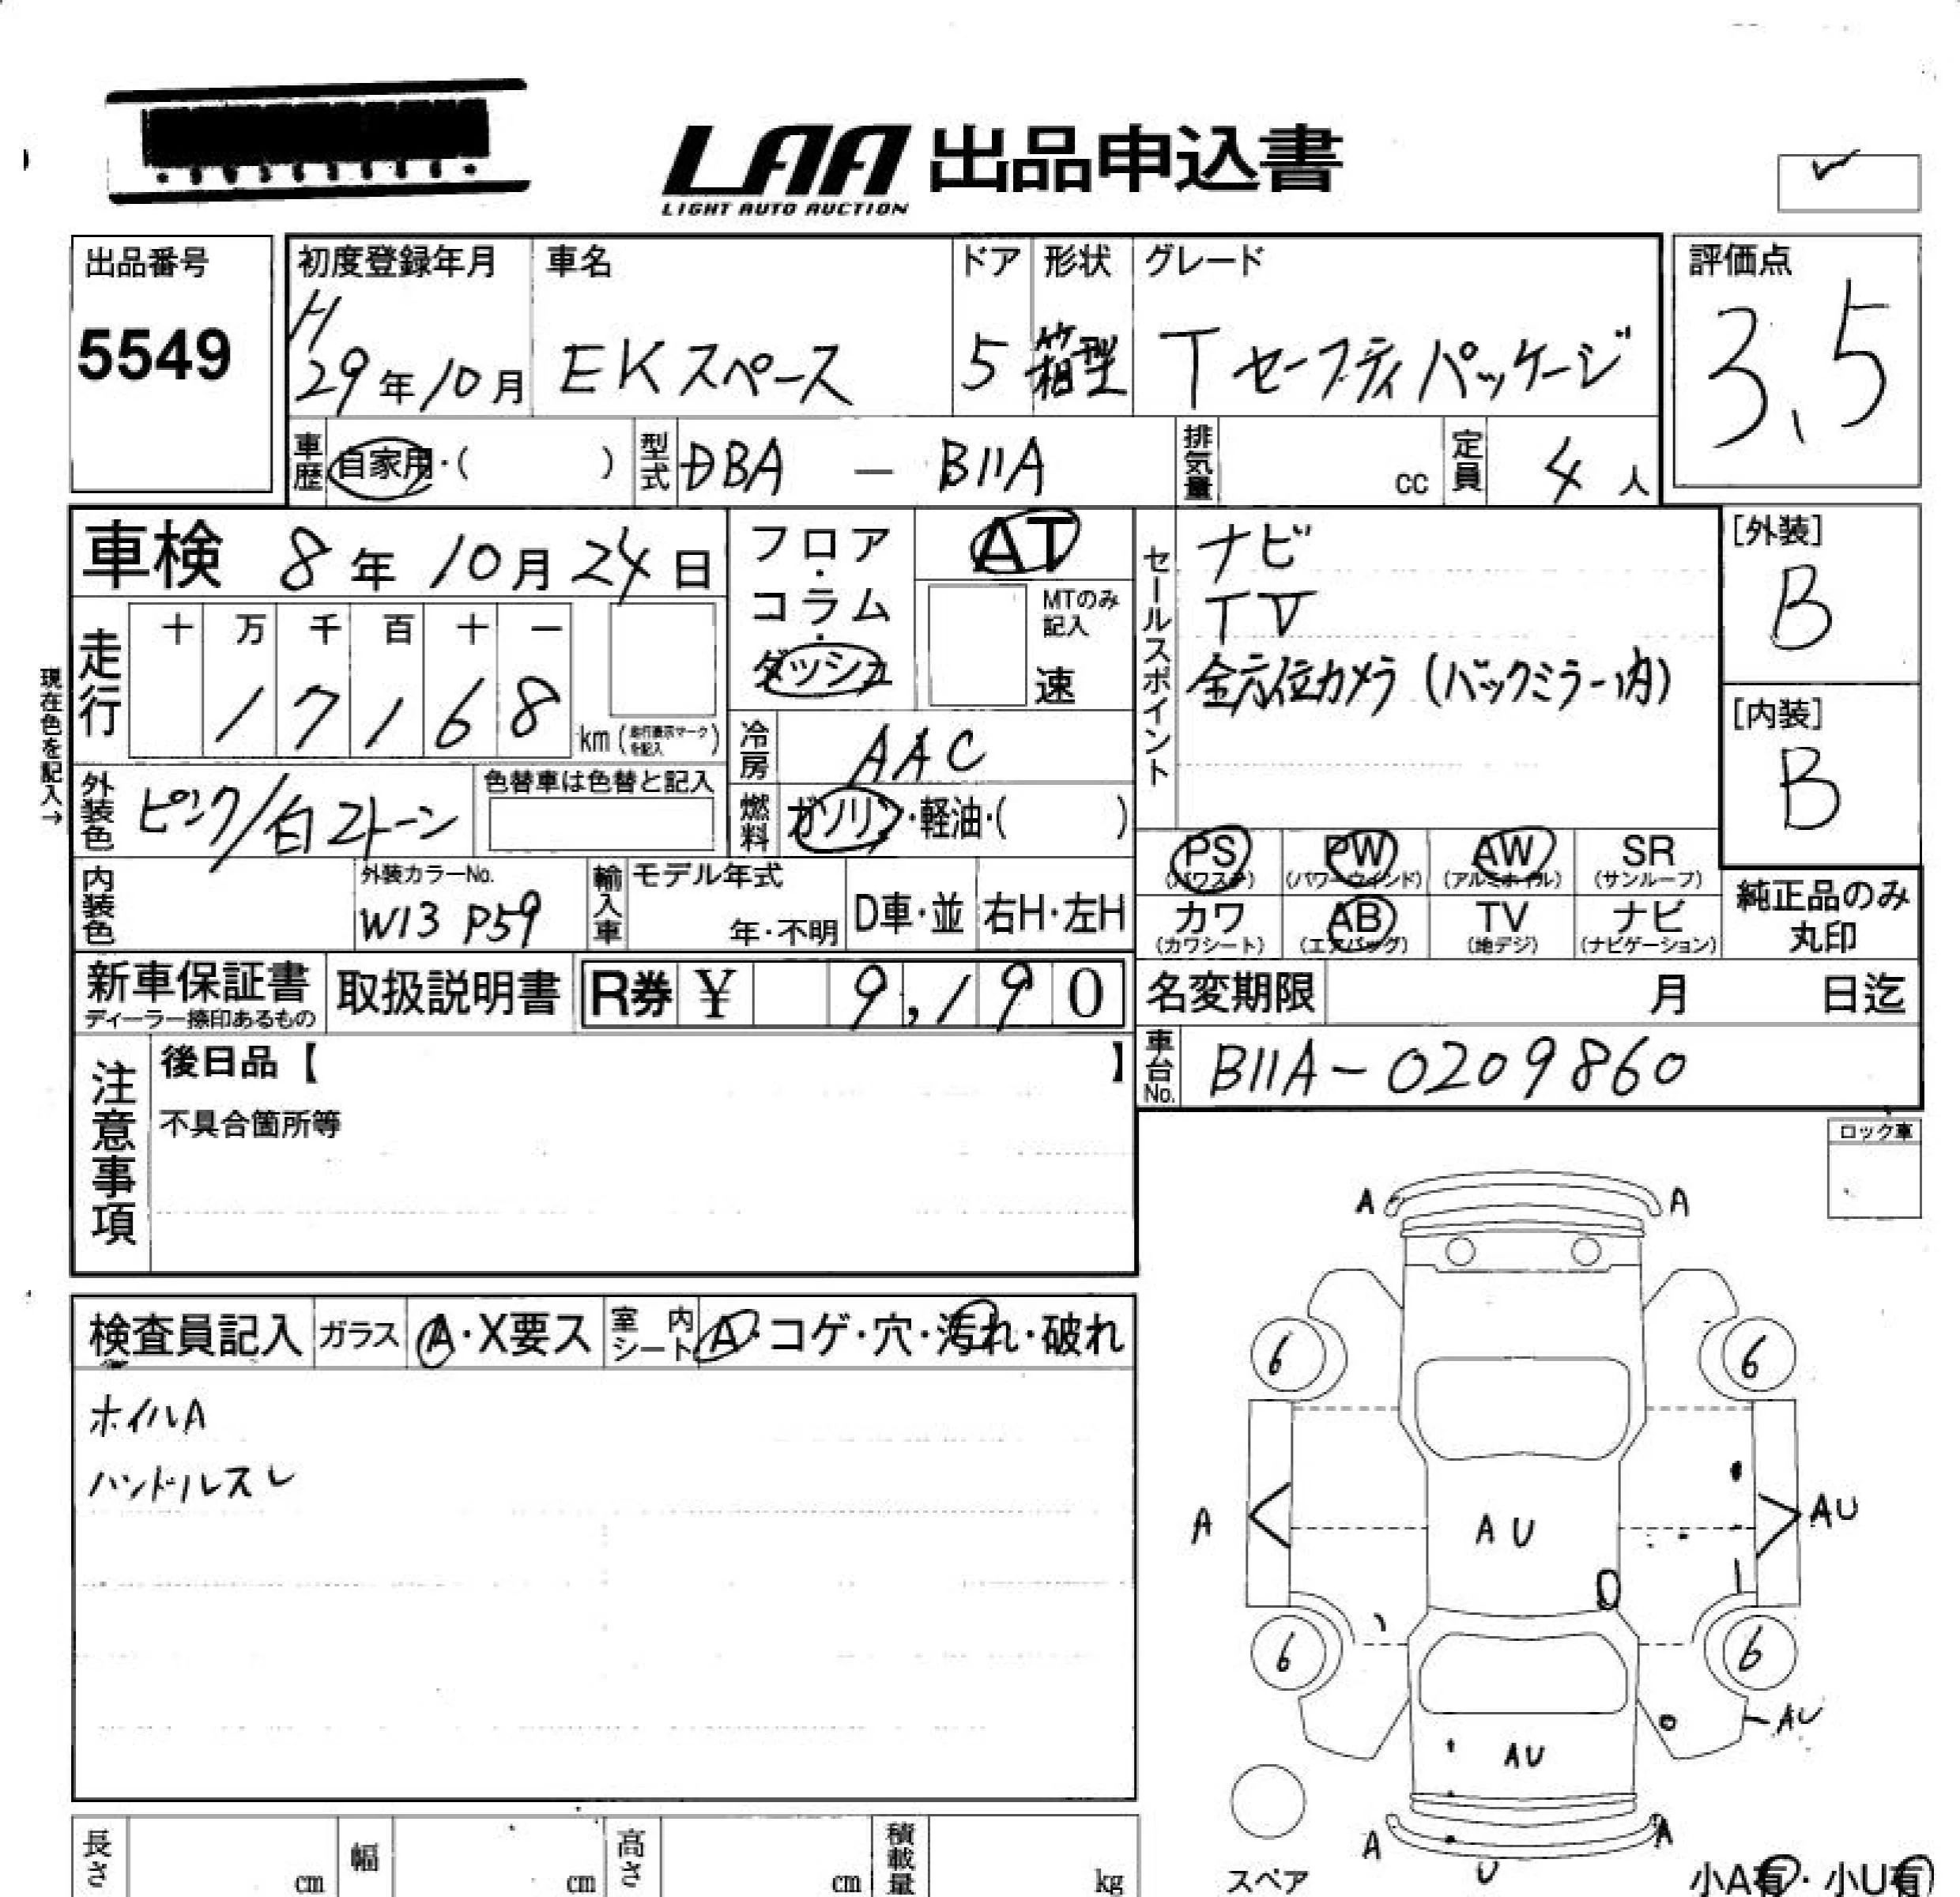 LAA 出品申込書
LIGHT AUTO AUCTION
出品番号
5549
初度登録年月
H
29年10月
車名
EKスペース
ドア
5
形状
箱型
グレード
Tセーフティパッケージ
評価点
3.5
車歴 自家用・( )
型式 DBA — B11A
排気量 cc
定員 4人
車検 8年10月24日
フロア・コラム・ダッシュ
AT
MTのみ記入
速
セールスポイント
ナビ
TV
全方位カメラ(バックミラー内)
[外装]
B
[内装]
B
現在色を記入→
走行
十 万 千 百 十 一
1 7 1 6 8 km (走行表示マークを記入)
冷房 AAC
外装色 ピンク/白2トーン
色替車は色替と記入
燃料 ガソリン・軽油・( )
PS (パワステ) PW (パワーウィンド) AW (アルミホイル) SR (サンルーフ)
カワ (カワシート) AB (エアバッグ) TV (地デジ) ナビ (ナビゲーション)
純正品のみ
丸印
内装色
外装カラーNo.
W13 P59
輸入車
モデル年式
年・不明
D車・並
右H・左H
新車保証書
ディーラー捺印あるもの
取扱説明書
R券 ¥ 9,190
名変期限 月 日迄
車台No. B11A-0209860
注意事項
後日品【 】
不具合箇所等
ロック車
検査員記入 ガラス A・X要ス 室内シート A・コゲ・穴・汚れ・破れ
ホイルA
ハンドルスレ
A A
6 6
A AU AU
6 6
AU
AU
A A
U
スペア
小A有・小U有
長さ cm 幅 cm 高さ cm 積載量 kg